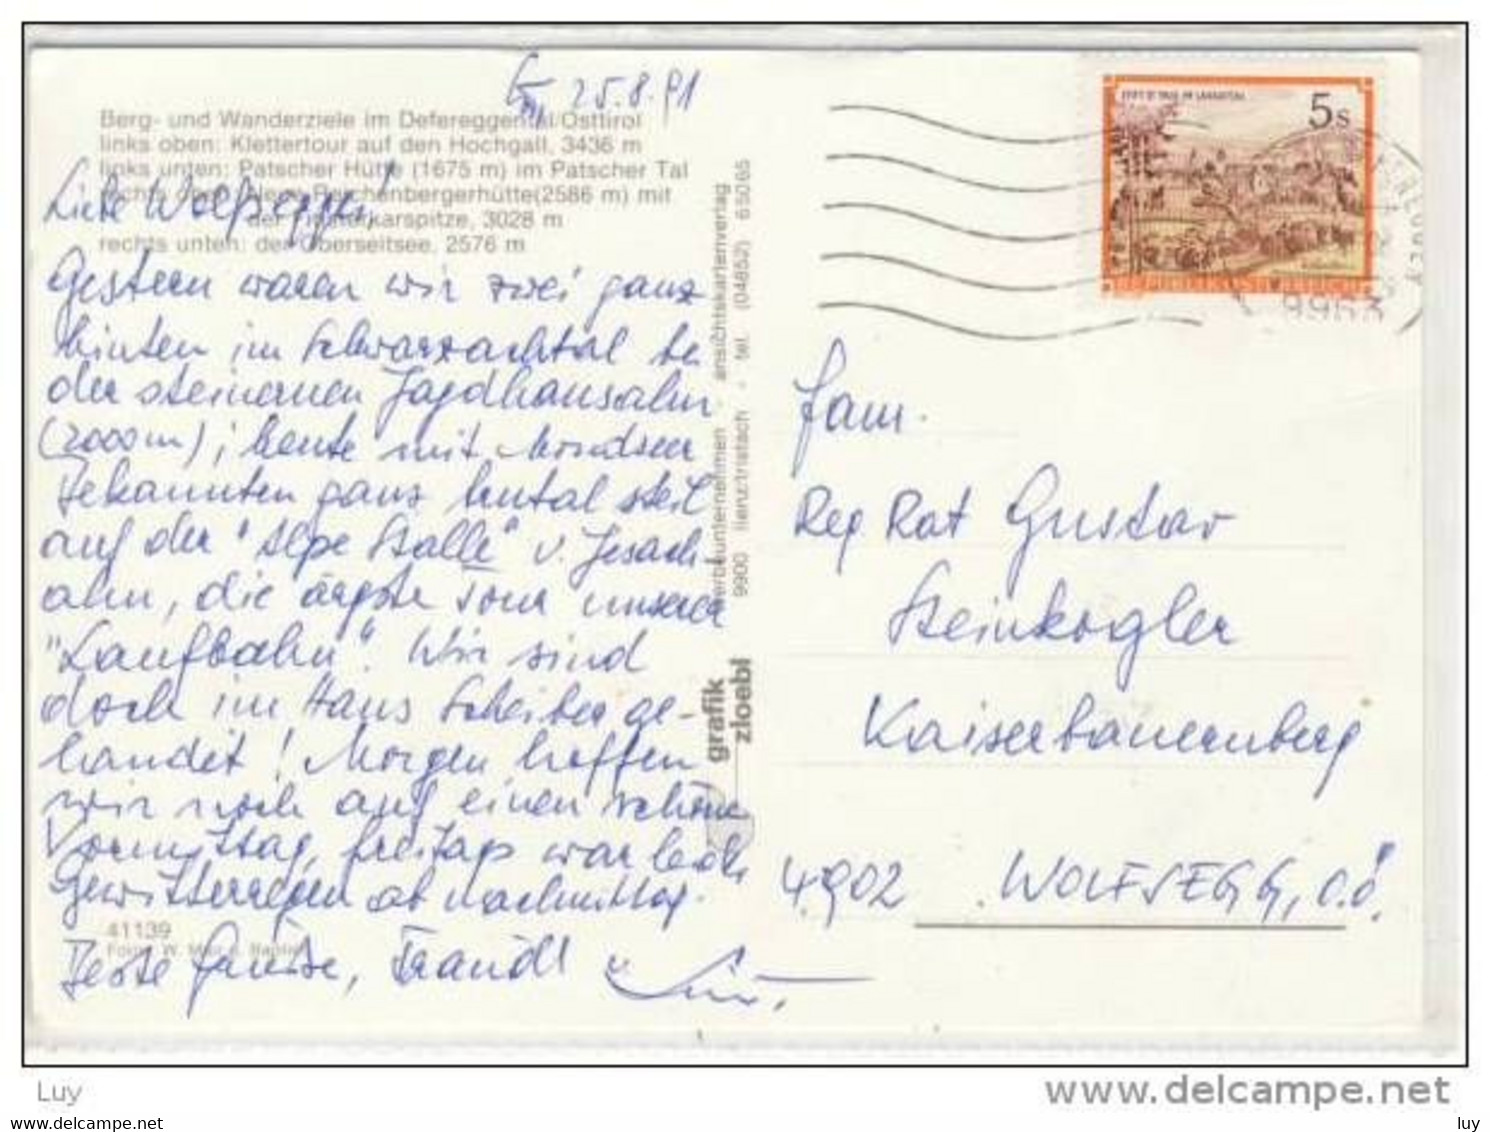 25.8.91
Berg- und Wanderziele im Defereggental/Osttirol
links oben: Klettertour auf den Hochgall, 3436 m
links unten: Patscher Hütte (1675 m) im Patscher Tal
rechts oben: Neue Reichenbergerhütte(2586 m) mit
der Finsterkarspitze, 3028 m
rechts unten: der Oberseitsee, 2576 m
Liebe Wolfsegger!
Gestern waren wir zwei ganz
hinten im Schwarzachtal bei
der steinernen Jagdhausalm
(2000m), heute mit Mondseer
Bekannten ganz brutal steil
auf der "Alpe Stalle" v. Jesach
alm, die ärgste Tour unserer
"Laufbahn". Wir sind
doch im Haus Scheiber ge-
landet! Morgen hoffen
wir noch auf einen schönen
Vormittag, freitags war leider
Gewitterregen ab Nachmittag.
41139
Beste Grüsse, Traudl u.
werbeunternehmen - ansichtskartenverlag
9900 lienz/tristach - tel. (04852) 65065
grafik
zloebl
5s
STIFT ST. PAUL IM LAVANTTAL
REPUBLIK ÖSTERREICH
9963
Fam.
Reg Rat Gustav
Steinkogler
Kaiserbauernberg
4902 WOLFSEGG, O.Ö.
Luy
www.delcampe.net
luy@delcampe.com
luy